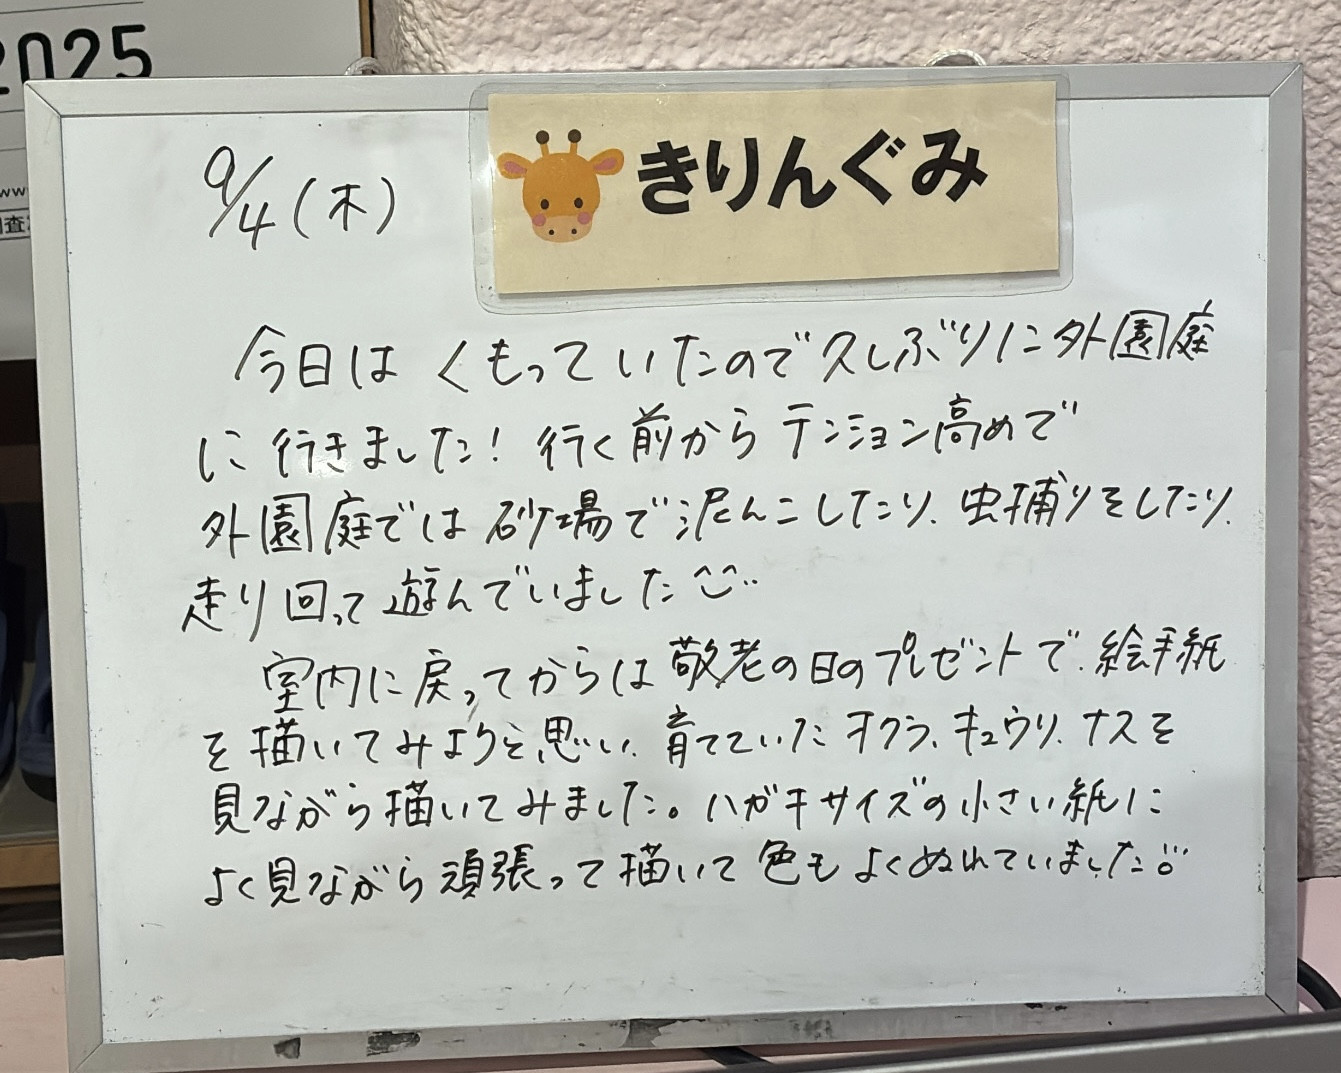 2025
きりんぐみ
9/4(木)
今日は くもっていたので久しぶりに外園庭
に行きました! 行く前からテンション高めで
外園庭では砂場で泥んこしたり、虫捕りをしたり、
走り回って遊んでいました
室内に戻ってからは敬老の日のプレゼントで、絵手紙
を描いてみようと思い、育てていたオクラ、キュウリ、ナスを
見ながら描いてみました。ハガキサイズの小さい紙に
よく見ながら頑張って描いて色もよくぬれていました